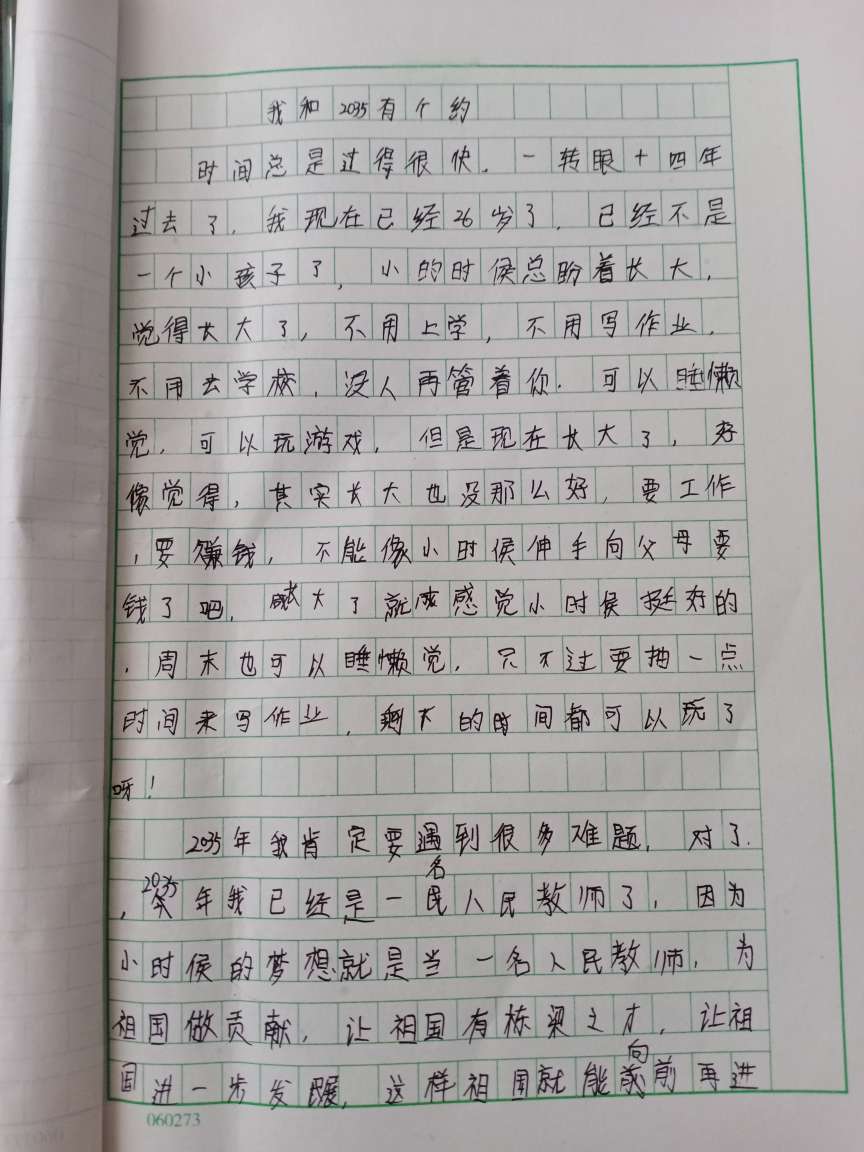 我和2035有个约
时间总是过得很快.一转眼十四年
过去了.我现在已经26岁了.已经不是
一个小孩子了,小的时侯总盼着长大,
觉得长大了,不用上学,不用写作业.
不用去学校,没人再管着你.可以睡懒
觉,可以玩游戏,但是现在长大了,好
像觉得,其实长大也没那么好,要工作
,要赚钱,不能像小时侯伸手向父母要
钱了吧,长大了就感觉小时侯挺好的
,周末也可以睡懒觉,只不过要抽一点
时间来写作业,剩下的时间都可以玩了
呀!
2035年我肯定要遇到很多难题,对了.
,2035年我已经是一名人民教师了,因为
小时侯的梦想就是当一名人民教师,为
祖国做贡献,让祖国有栋梁之才,让祖
国进一步发展,这样祖国就能向前再进
060273